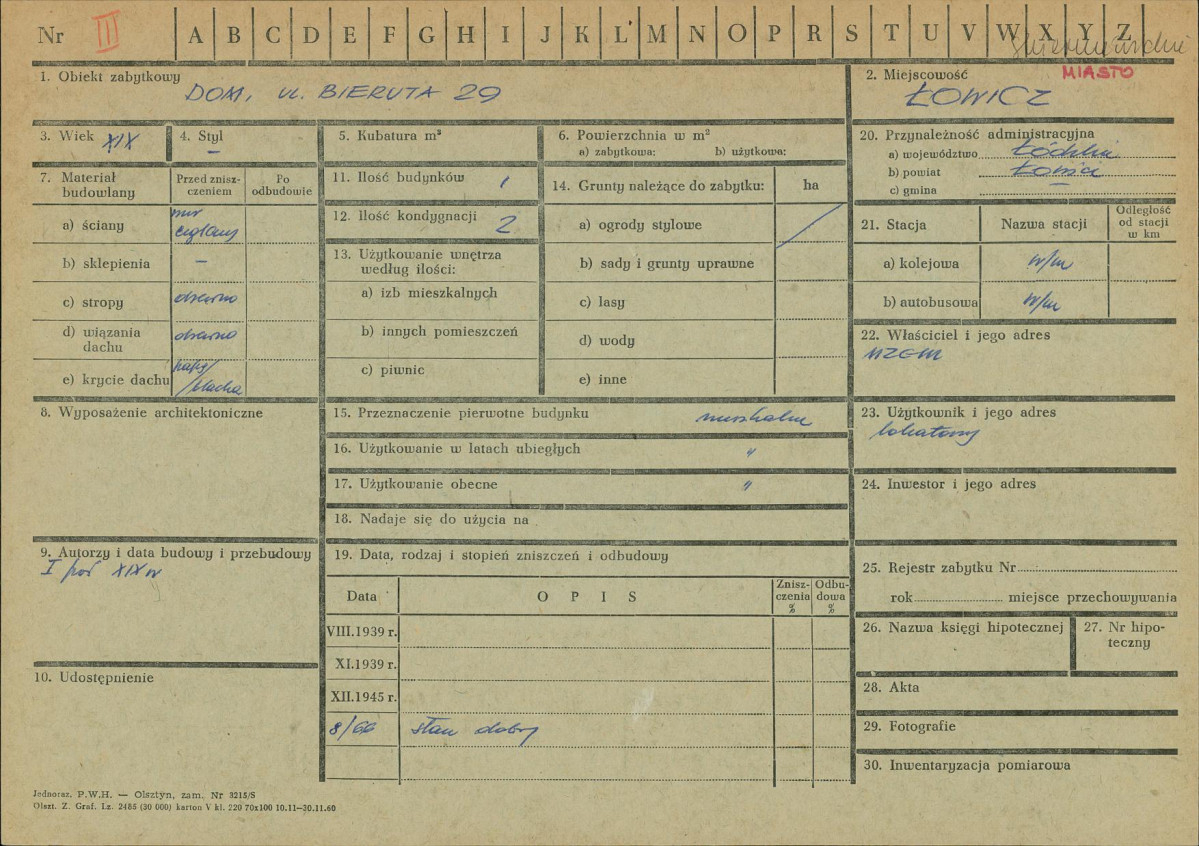 Nr III A B C D E F G H I J K L Ł M N O P R S T U V W X Y Z
MIASTO
1. Obiekt zabytkowy
DOM, ul. BIERUTA 29
2. Miejscowość
ŁOWICZ
3. Wiek XIX
4. Styl –
5. Kubatura m³
6. Powierzchnia w m²
a) zabytkowa: b) użytkowa:
7. Materiał budowlany
Przed zniszczeniem
Po odbudowie
a) ściany mur ceglany
b) sklepienia –
c) stropy drewno
d) wiązania dachu drewno
e) krycie dachu papa/blacha
8. Wyposażenie architektoniczne
9. Autorzy i data budowy i przebudowy
I poł XIX w
10. Udostępnienie
11. Ilość budynków 1
12. Ilość kondygnacji 2
13. Użytkowanie wnętrza
według ilości:
a) izb mieszkalnych
b) innych pomieszczeń
c) piwnic
14. Grunty należące do zabytku: ha
a) ogrody stylowe
b) sady i grunty uprawne
c) lasy
d) wody
e) inne
15. Przeznaczenie pierwotne budynku mieszkalne
16. Użytkowanie w latach ubiegłych "
17. Użytkowanie obecne "
18. Nadaje się do użycia na
19. Data, rodzaj i stopień zniszczeń i odbudowy
Data OPIS Zniszczenia % Odbudowa %
VIII.1939 r.
XI.1939 r.
XII.1945 r.
8/66 stan dobry
20. Przynależność administracyjna
a) województwo Łódzkie
b) powiat Łowicz
c) gmina –
21. Stacja Nazwa stacji Odległość od stacji w km
a) kolejowa w/m
b) autobusowa w/m
22. Właściciel i jego adres
MZGM
23. Użytkownik i jego adres
lokatorzy
24. Inwestor i jego adres
25. Rejestr zabytku Nr
rok miejsce przechowywania
26. Nazwa księgi hipotecznej
27. Nr hipoteczny
28. Akta
29. Fotografie
30. Inwentaryzacja pomiarowa
Jednoraz. P.W.H. — Olsztyn, zam. Nr 3215/S
Olszt. Z. Graf. Lz. 2485 (30 000) karton V kl. 220 70x100 10.11—30.11.60